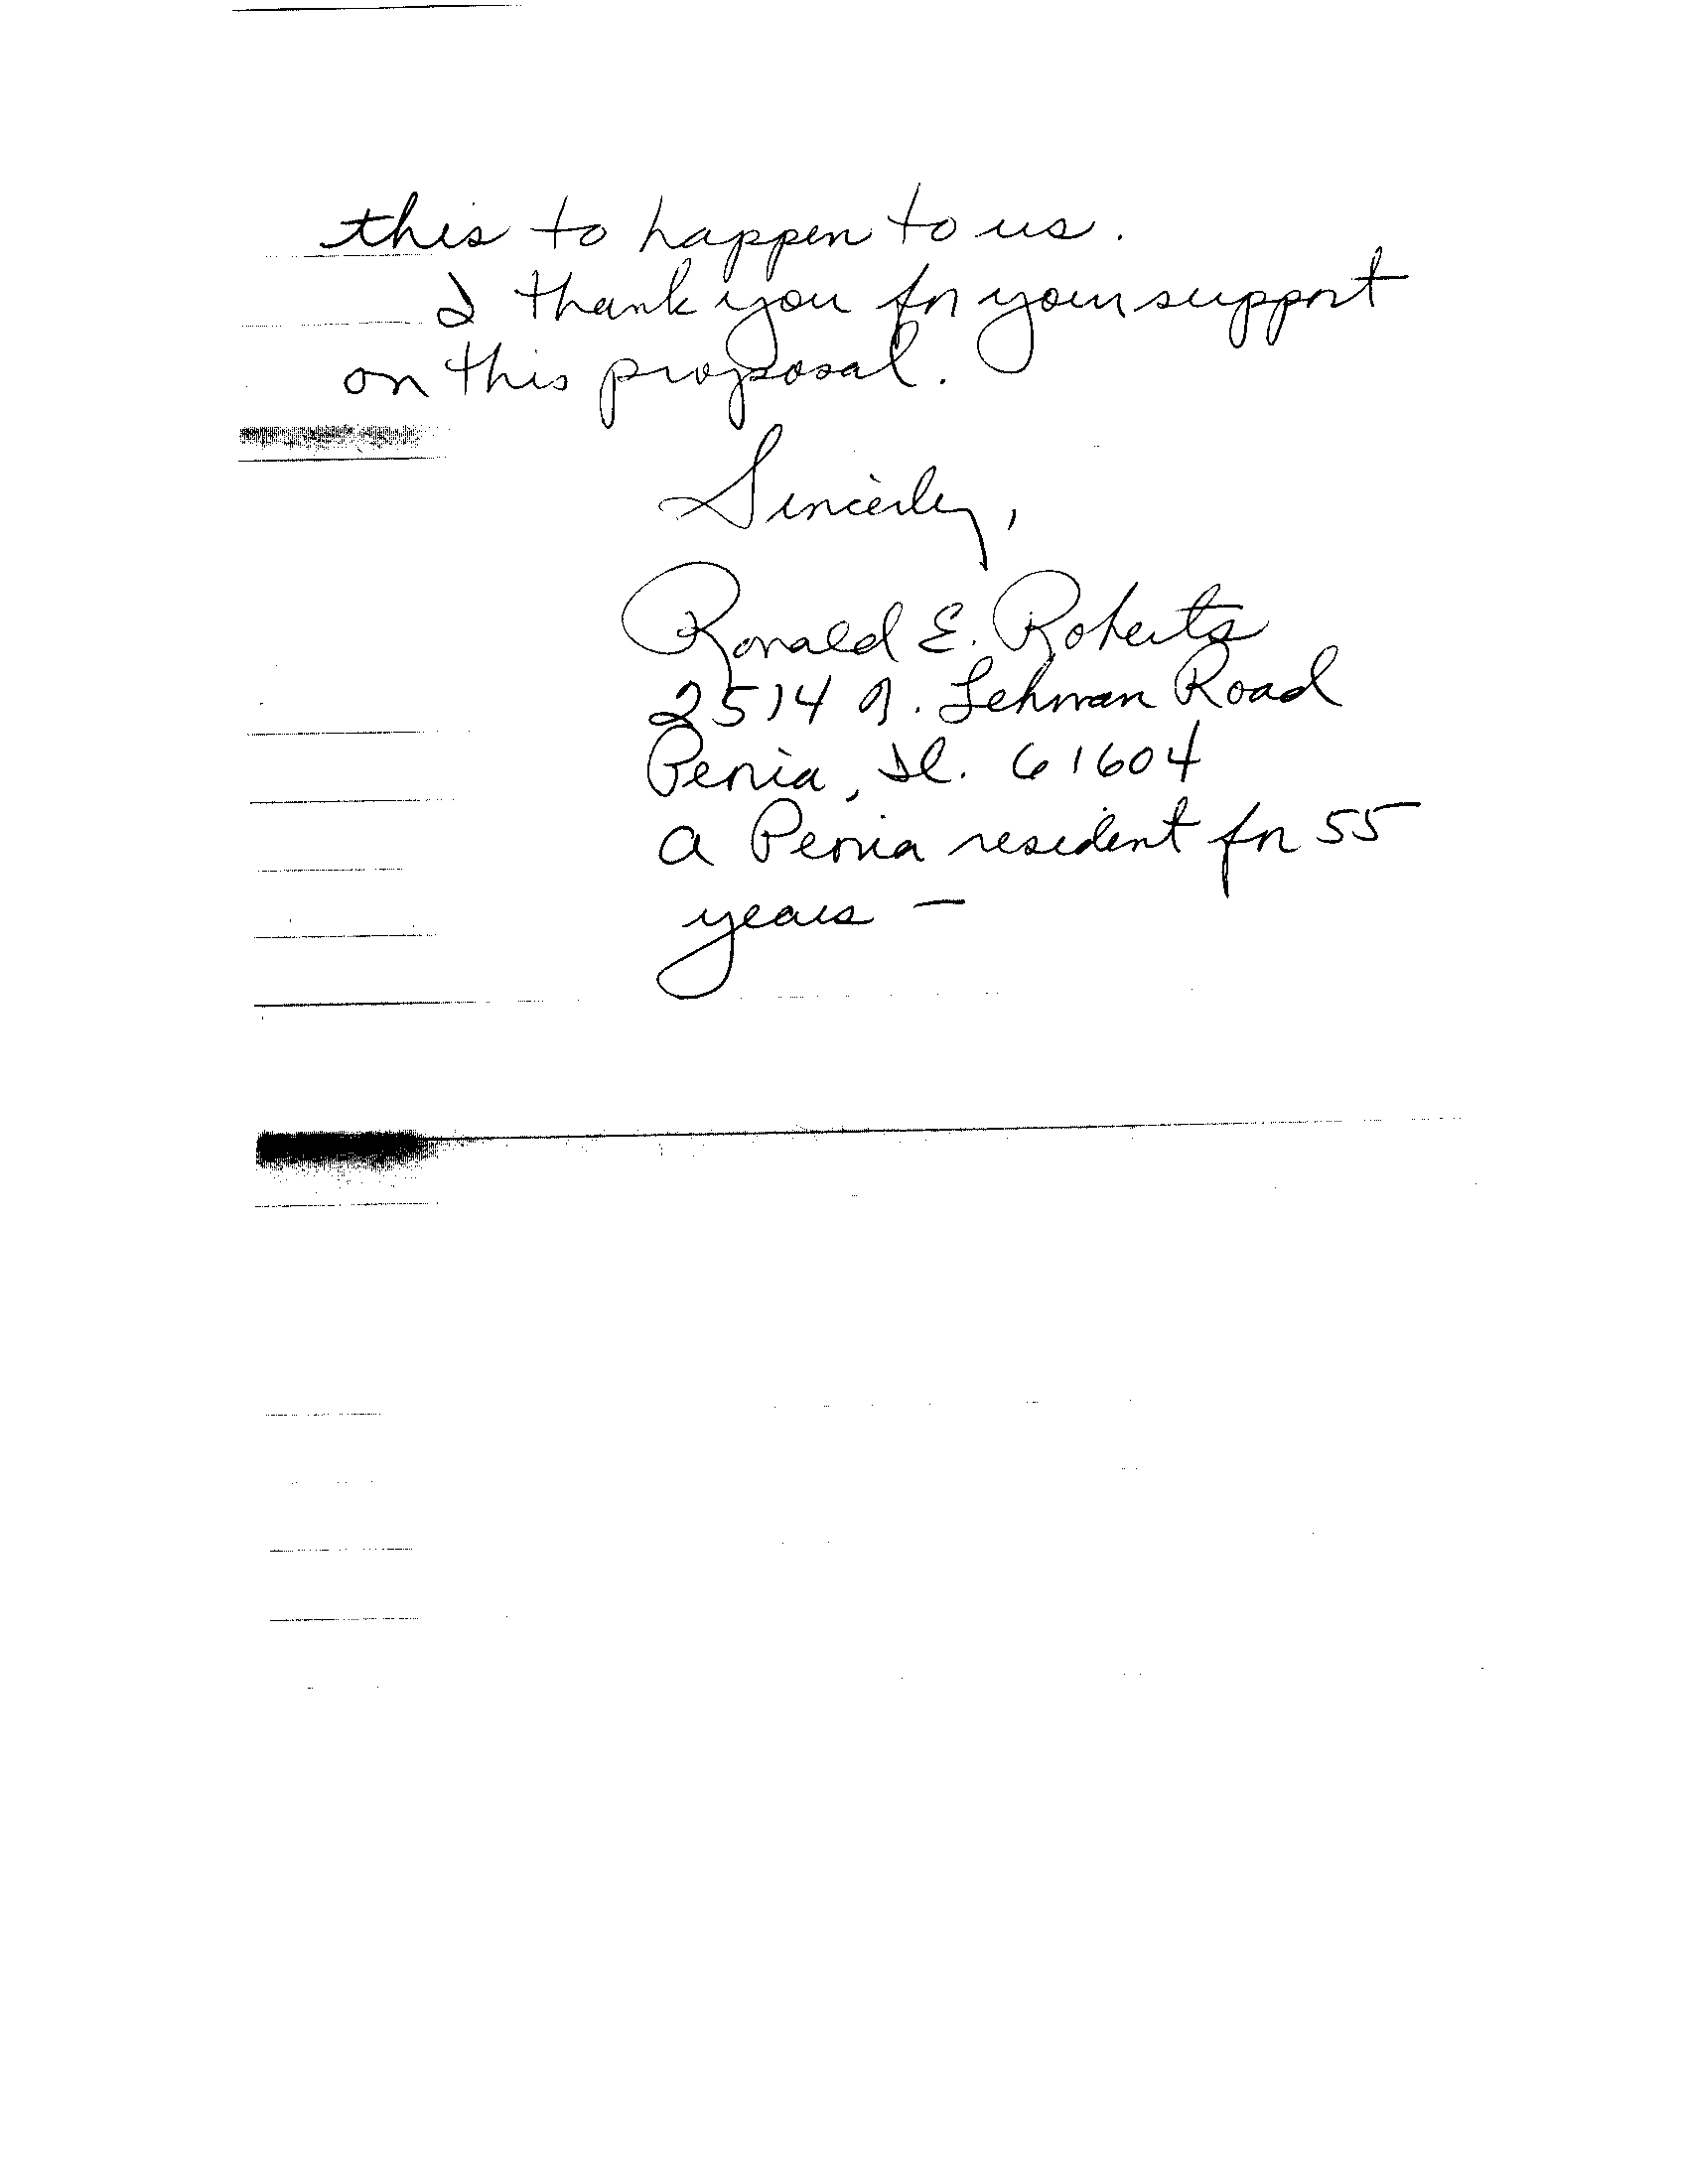 this to happen to us.
I thank you for your support
on this proposal.
Sincerley,
Ronald E. Roberts
2514 N. Lehman Road
Peoria, Il. 61604
a Peoria resident for 55
years —